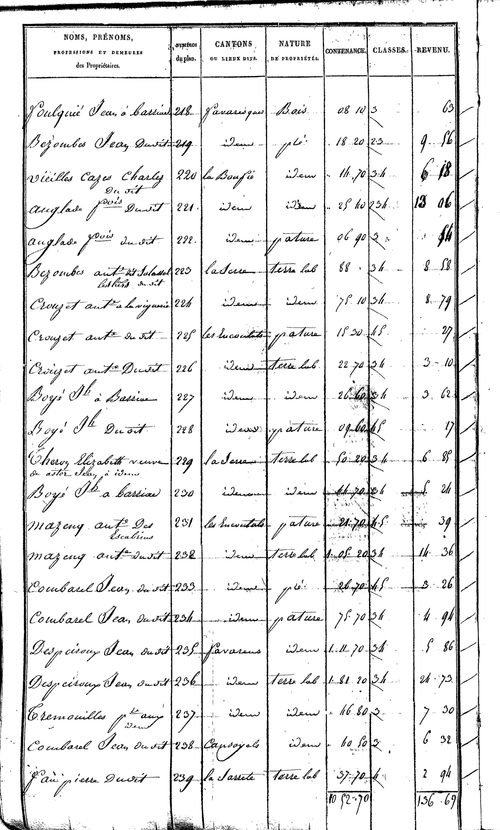 NOMS, PRÉNOMS, PROFESSIONS ET DEMEURES des Propriétaires. NUMÉROS du plan. CANTONS OU LIEUX DITS. NATURE DE PROPRIÉTÉS. CONTENANCE. CLASSES. REVENU.
Foulquié Jean à Carrinac 218 Favaresques Bois 08 10 3 63
Bezombes Jean Dudit 219 idem pré 18 20 23 9 56
Vieilles Cazes Charles Dudit 220 la Boufie idem 14 70 34 6 18
Anglade fçois Dudit 221 idem idem 25 40 234 13 06
Anglade fçois dudit 222 idem pature 06 90 3 54
Bezombes ant.e dit dudit 223 la Serre terre lab 88 34 8 58
Crouzet ant.e a la viguerie 224 idem idem 75 10 34 8 79
Crouzet ant.e dudit 225 les Encontals pature 15 30 45 27
Crouzet ant.e Dudit 226 idem terre lab 22 70 34 3 10
Boyé Jh à 227 idem idem 26 60 34 3 62
Boyé Jh Dudit 228 idem pature 09 60 45 17
Elizabeth veuve de astor Jean, à idem 229 la Serre terre lab 50 20 34 6 85
Boyé Jh a 230 idem idem 44 70 34 5 24
Mazenq ant.e Des 231 les Encontals pature 21 70 45 39
Mazenq ant.e dudit 232 idem terre lab 1 05 20 34 14 36
Combarel Jean dudit 233 idem pré 26 70 45 3 26
Combarel Jean dudit 234 idem pature 75 70 34 4 94
Despeiroux Jean dudit 235 Favarens idem 1 11 70 34 5 86
Despeiroux Jean dudit 236 idem terre lab 1 81 20 34 24 73
Tremouilles idem 237 idem idem 46 80 3 7 30
Combarel Jean dudit 238 idem 40 50 3 6 32
pierre Dudit 239 la Sarrete terre lab 37 70 4 2 94
10 52 70 136 69